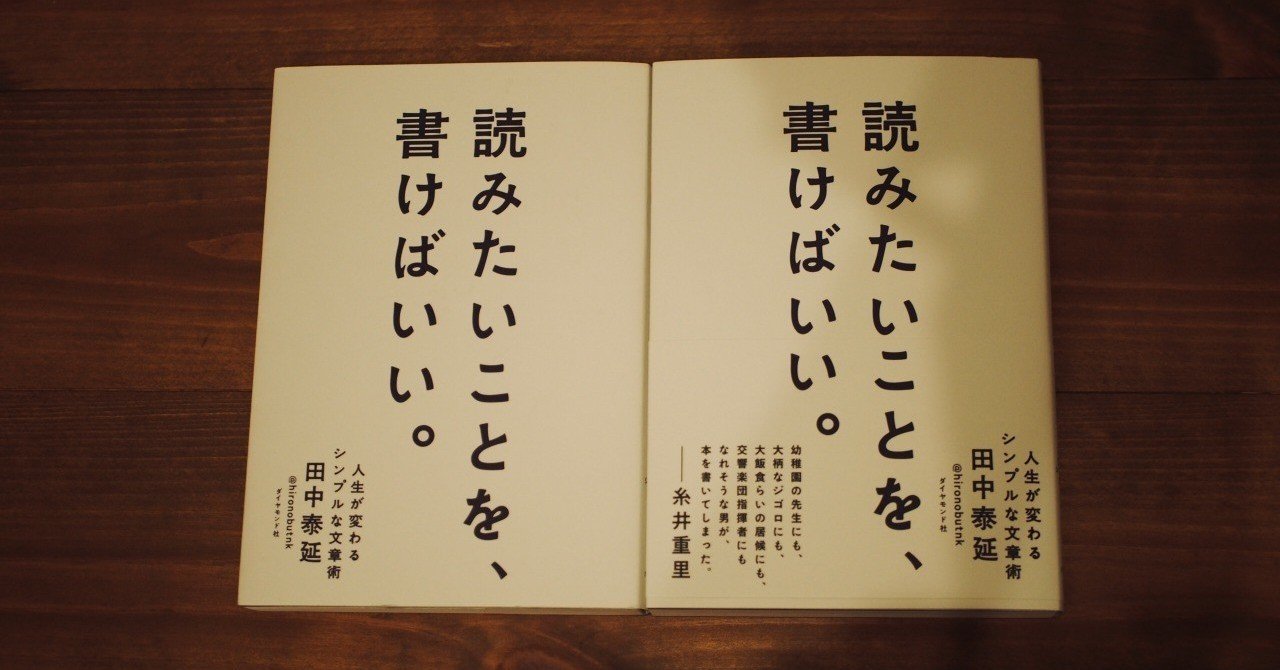 読みたいことを、
書けばいい。
人生が変わる
シンプルな文章術
田中泰延
@hironobutnk
ダイヤモンド社
読みたいことを、
書けばいい。
人生が変わる
シンプルな文章術
田中泰延
@hironobutnk
ダイヤモンド社
幼稚園の先生にも、
大柄なジゴロにも、
大飯食らいの居候にも、
交響楽団指揮者にも
なれそうな男が、
本を書いてしまった。
──糸井重里